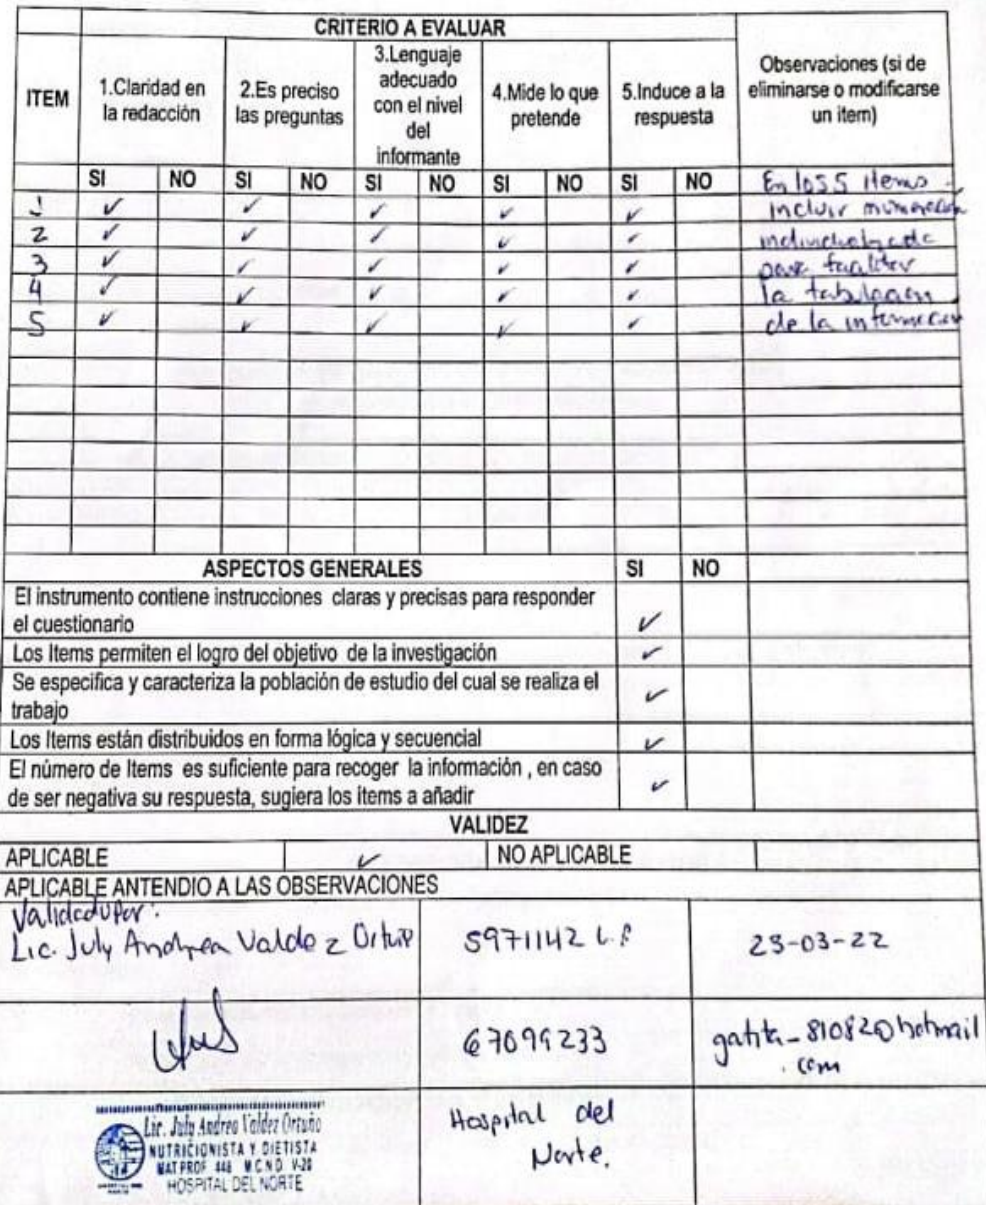 CRITERIO A EVALUAR
ITEM
1.Claridad en
la redacción
2.Es preciso
las preguntas
3.Lenguaje
adecuado
con el nivel
del
informante
4.Mide lo que
pretende
5.Induce a la
respuesta
Observaciones (si de
eliminarse o modificarse
un item)
SI NO SI NO SI NO SI NO SI NO
En los 5 items
incluir
1 ✓ ✓ ✓ ✓ ✓
2 ✓ ✓ ✓ ✓ ✓
3 ✓ ✓ ✓ ✓ ✓
para
4 ✓ ✓ ✓ ✓ ✓
la
5 ✓ ✓ ✓ ✓ ✓
de la
ASPECTOS GENERALES SI NO
El instrumento contiene instrucciones claras y precisas para responder
el cuestionario ✓
Los Items permiten el logro del objetivo de la investigación ✓
Se especifica y caracteriza la población de estudio del cual se realiza el
trabajo ✓
Los Items están distribuidos en forma lógica y secuencial ✓
El número de Items es suficiente para recoger la información , en caso
de ser negativa su respuesta, sugiera los items a añadir ✓
VALIDEZ
APLICABLE ✓ NO APLICABLE
APLICABLE ANTENDIO A LAS OBSERVACIONES
Validado por:
Lic. July Andrea Valdez 5971142 L.P
67099233
gatita_81082@hotmail
.com
Lic. July Andrea Valdez Ortuño
NUTRICIONISTA Y DIETISTA
MAT PROF 448 M.C.N.D V-20
HOSPITAL DEL NORTE
Hospital del
Norte.